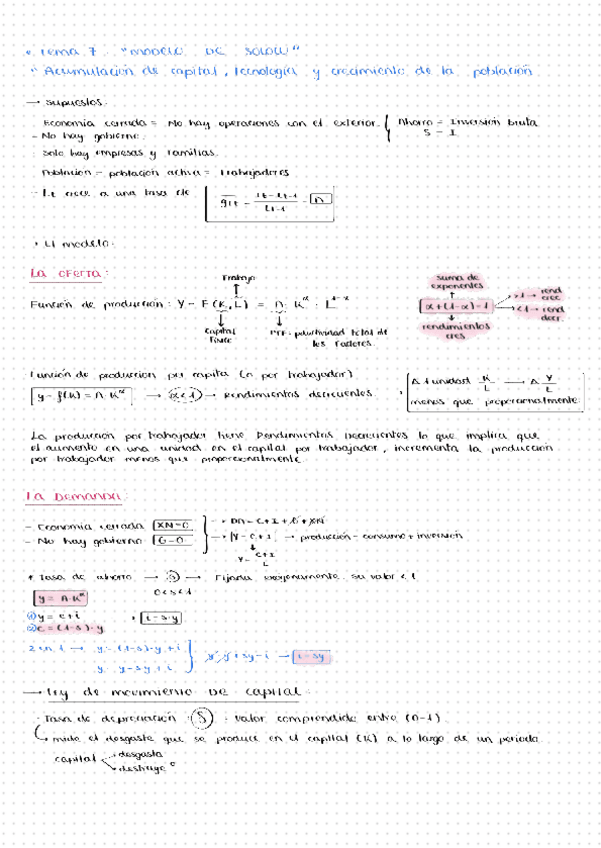 * Tema 7 "MODELO DE SOLOW"
" Acumulación de capital, tecnología y crecimiento de la población
→ Supuestos:
Economía cerrada = No hay operaciones con el exterior. { Ahorro = Inversión bruta
S = I
- No hay gobierno.
- Solo hay empresas y familias.
Población = población activa = trabajadores
- Lt crece a una tasa de gLt = Lt - Lt-1 / Lt-1 = n
* El modelo:
La OFERTA:
Trabajo
Función de producción: Y = F(K,L) = A · K^α · L^1-α
Capital Físico
PTF = productividad total de los factores.
suma de exponentes
α+(1-α)=1
>1 → rend crec.
<1 → rend decr.
rendimientos ctes
Función de producción per cápita (o por trabajador)
y = f(k) = A·K^α → α<1 → Rendimientos decrecientes.
Δ 1 unidad K/L → Δ Y/L
menos que proporcionalmente
La producción por trabajador tiene Rendimientos Decrecientes lo que implica que
el aumento en una unidad en el capital por trabajador, incrementa la producción
por trabajador menos que proporcionalmente.
La DEMANDA:
- Economía cerrada XN=0
- No hay gobierno G=0
→ DA = C+I+G+XN
→ Y=C+I → producción = consumo + inversión
Y = C+I / L
* Tasa de ahorro → s → Fijada exógenamente su valor < 1
0<s<1
y = A·K^α
① y = c+i
i=s·y
② c = (1-s)·y
2 en 1 → y = (1-s)·y+i
y = y-sy+i
y = y-sy+i → i=sy
→ Ley de movimiento DE CAPITAL:
· Tasa de depreciación δ: valor comprendido entre (0-1).
mide el desgaste que se produce en el capital (K) a lo largo de un periodo.
capital
desgasta
destruye